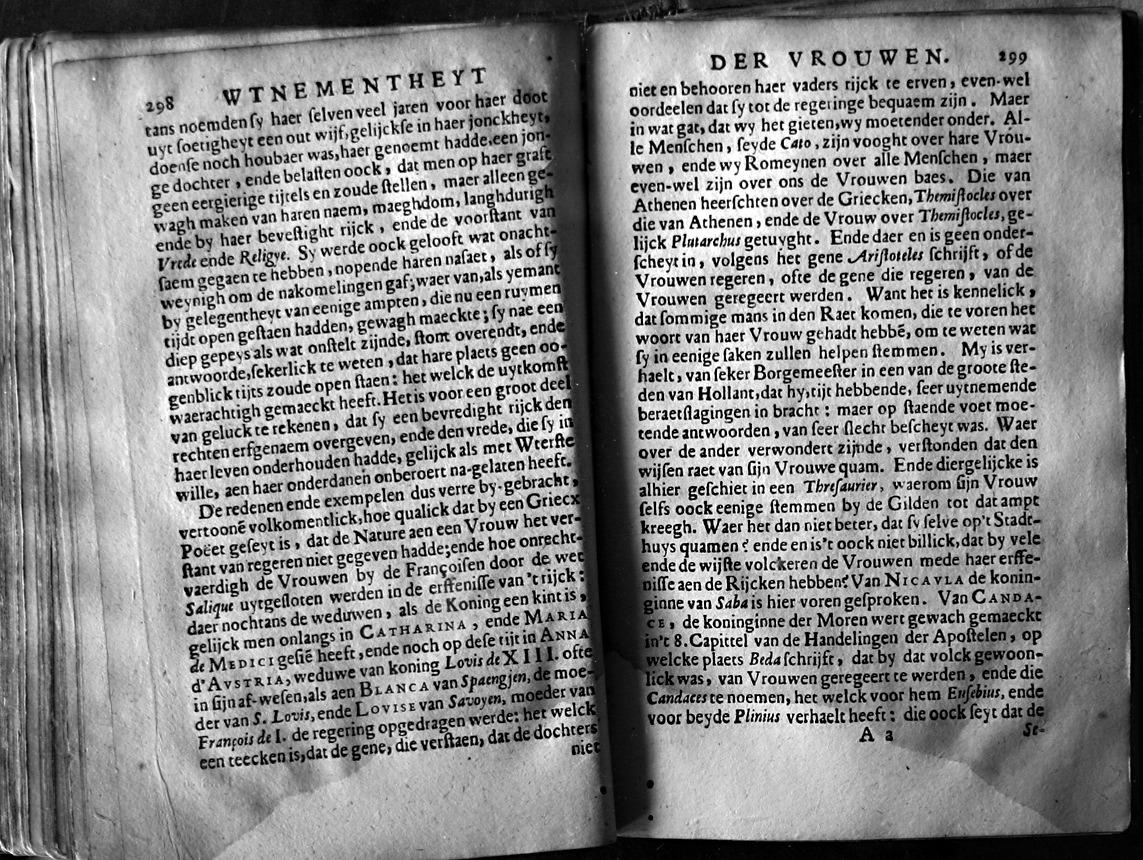 298 WTNEMENTHEYT
tans noemden ſy haer ſelven veel jaren voor haer doot
uyt ſoetigheyt een out wijf, gelijckſe in haer jonckheyt,
doenſe noch houbaer was, haer genoemt hadde, een jon-
ge dochter, ende belaſten oock, dat men op haer graft
geen eergierige tijtels en zoude ſtellen, maer alleen ge-
wagh maken van haren naem, maeghdom, langhdurigh
ende by haer beveſtight rijck, ende de voorſtant van
Vrede ende Religye. Sy werde oock gelooft wat onacht-
ſaem gegaen te hebben, nopende haren naſaet, als of ſy
weynigh om de nakomelingen gaf; waer van, als yemant
by gelegentheyt van eenige ampten, die nu een ruymen
tijdt open geſtaen hadden, gewagh maeckte; ſy nae een
diep gepeys als wat onſtelt zijnde, ſtont overendt, ende
antwoorde, ſekerlick te weten, dat hare plaets geen oo-
genblick tijts zoude open ſtaen: het welck de uytkomſt
waerachtigh gemaeckt heeft. Het is voor een groot deel
van geluck te rekenen, dat ſy een bevredight rijck den
rechten erfgenaem overgeven, ende den vrede, die ſy in
haer leven onderhouden hadde, gelijck als met Wterſte
wille, aen haer onderdanen onberoert na-gelaten heeft.
De redenen ende exempelen dus verre by-gebracht,
vertooné volkomentlick, hoe qualick dat by een Griecx
Poëet geſeyt is, dat de Nature aen een Vrouw het ver-
ſtant van regeren niet gegeven hadde; ende hoe onrecht-
vaerdigh de Vrouwen by de Françoiſen door de wet
Salique uytgeſloten werden in de erffeniſſe van 't rijck:
daer nochtans de weduwen, als de Koning een kint is,
gelijck men onlangs in CATHARINA, ende MARIA
de MEDICI geſié heeft, ende noch op deſe tijt in ANNA
d'AVSTRIA, weduwe van koning Lovis de XIII. ofte
in ſijn af-weſen, als aen BLANCA van Spaengjen, de moe-
der van S. Lovis, ende LOVISE van Savoyen, moeder van
François de I. de regering opgedragen werde: het welck
een teecken is, dat de gene, die verſtaen, dat de dochters
niet
DER VROUWEN. 299
niet en behooren haer vaders rijck te erven, even-wel
oordeelen dat ſy tot de regeringe bequaem zijn. Maer
in wat gat, dat wy het gieten, wy moetender onder. Al-
le Menſchen, ſeyde Cato, zijn vooght over hare Vrou-
wen, ende wy Romeynen over alle Menſchen, maer
even-wel zijn over ons de Vrouwen baes. Die van
Athenen heerſchten over de Griecken, Themiſtocles over
die van Athenen, ende de Vrouw over Themiſtocles, ge-
lijck Plutarchus getuyght. Ende daer en is geen onder-
ſcheyt in, volgens het gene Ariſtoteles ſchrijft, of de
Vrouwen regeren, ofte de gene die regeren, van de
Vrouwen geregeert werden. Want het is kennelick,
dat ſommige mans in den Raet komen, die te voren het
woort van haer Vrouw gehadt hebbé, om te weten wat
ſy in eenige ſaken zullen helpen ſtemmen. My is ver-
haelt, van ſeker Borgemeeſter in een van de groote ſte-
den van Hollant, dat hy, tijt hebbende, ſeer uytnemende
beraetſlagingen in bracht: maer op ſtaende voet moe-
tende antwoorden, van ſeer ſlecht beſcheyt was. Waer
over de ander verwondert zijnde, verſtonden dat den
wijſen raet van ſijn Vrouwe quam. Ende diergelijcke is
alhier geſchiet in een Threſaurier, waerom ſijn Vrouw
ſelfs oock eenige ſtemmen by de Gilden tot dat ampt
kreegh. Waer het dan niet beter, dat ſy ſelve op't Stadt-
huys quamen? ende en is't oock niet billick, dat by vele
ende de wijſte volckeren de Vrouwen mede haer erffe-
niſſe aen de Rijcken hebben? Van NICAVLA de konin-
ginne van Saba is hier voren geſproken. Van CANDA-
CE, de koninginne der Moren wert gewach gemaeckt
in't 8. Capittel van de Handelingen der Apoſtelen, op
welcke plaets Beda ſchrijft, dat by dat volck gewoon-
lick was, van Vrouwen geregeert te werden, ende die
Candaces te noemen, het welck voor hem Euſebius, ende
voor beyde Plinius verhaelt heeft: die oock ſeyt dat de
A a Se-